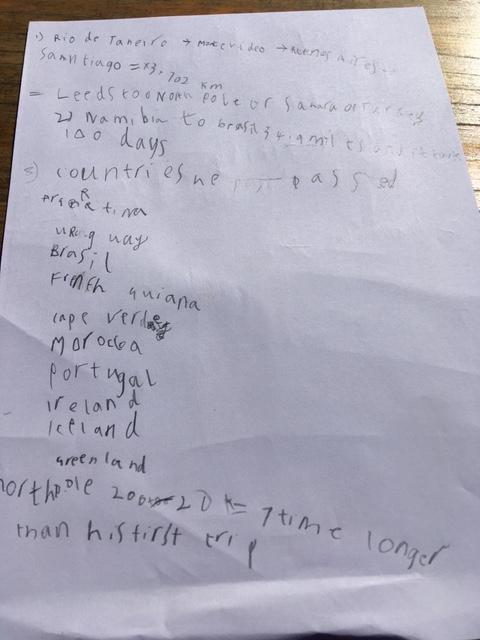 1) Rio de Taneiro → Montevideo → Buenos Aires →
Santiago = 3,702 km
= Leeds to Noth Pole or Sahara or Turkey
2) Namibia to brasil 3 4 miles and it took
100 days
3) countries he passed
Argentina
urag uay
Brasil
Frnth guiana
cape verde
Morocca
portugal
ireland
Iceland
Greenland
northpole 20 k = 7 time longer
than his first trip